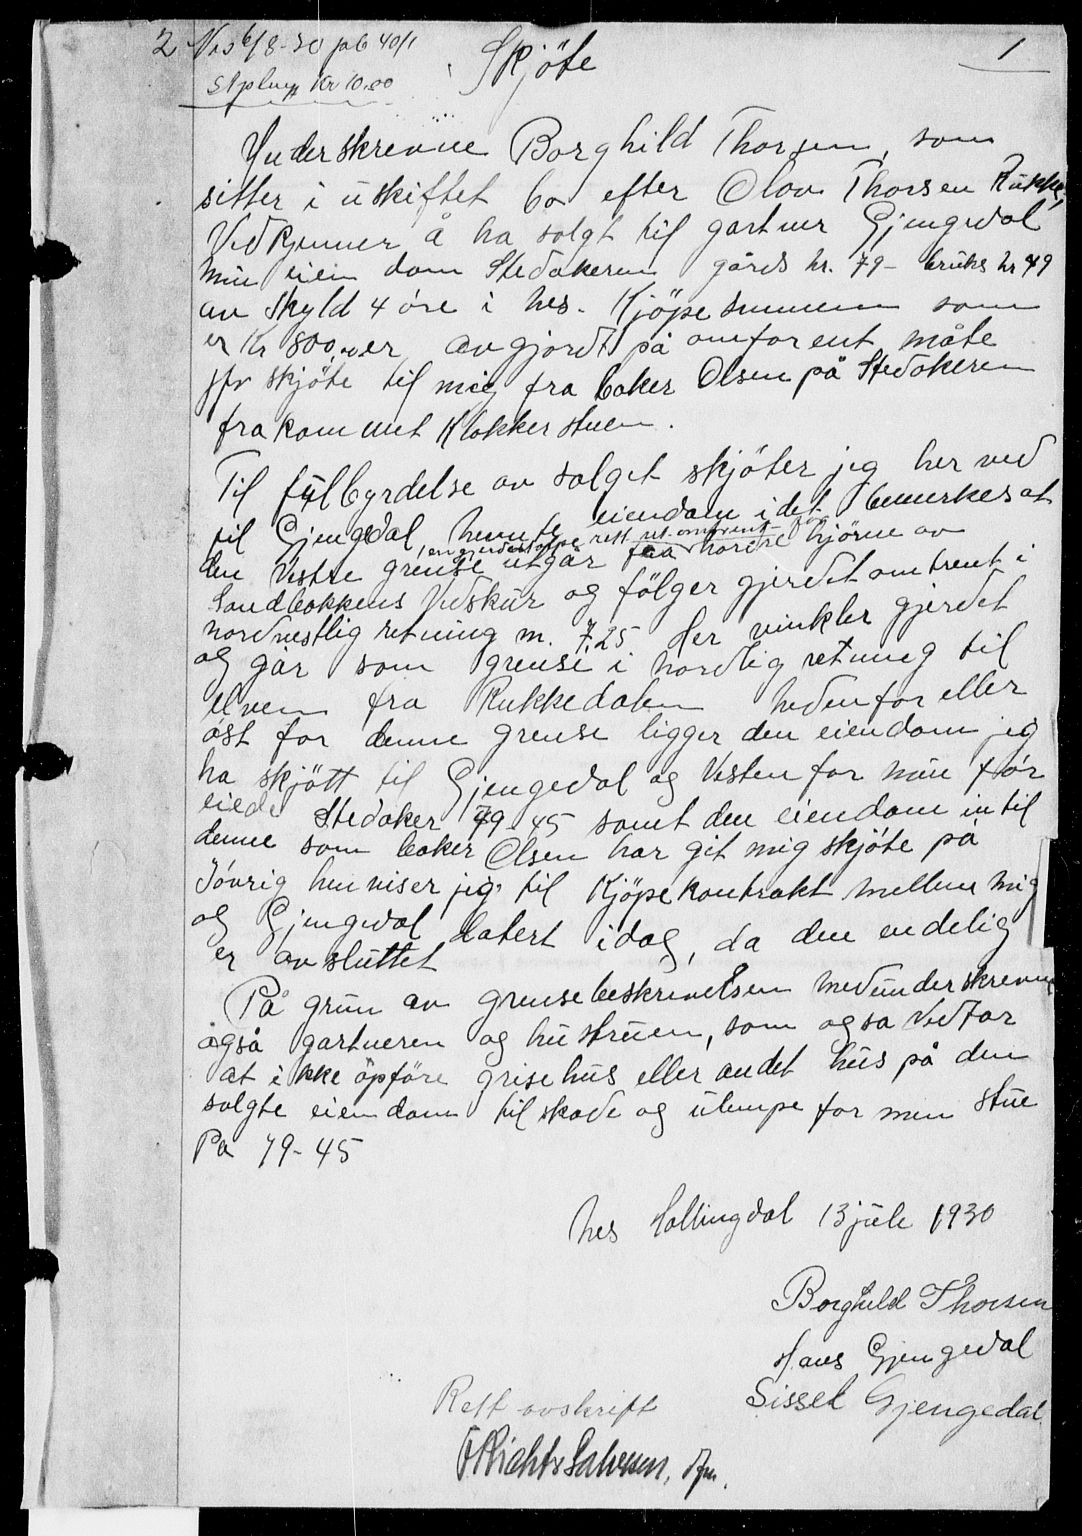 2 Nes 6/8-30 pb 40/1
1
Stplmg Kr 10.00
Skjöte
Underskrevne Borghild Thorsen, som
sitter i uskiftet bo efter Olav Thorsen Rukke,
Vedkjenner å ha solgt til gartner Gjengedal
min eiendom Stedakeren gårds nr. 79 - bruks nr 49
av Skyld 4 öre i nes. Kjöpesummen som
er Kr 800,00 er avgjordt på omforent måte
jfr skjöte til mig fra baker Olsen på Stedakeren
frakommet Klokkerstuen.
Til fulbyrdelse av salget skjöter jeg herved
til Gjengedal, nevnte eiendom idet bemerkes at
den Vestre grense utgår fra nordre hjörne av
, en gjerdestolpe rett
Sandbakkens Vedskur og fölger gjerdet omtrent i
nordvestlig retning m. 7,25 Her vinkler gjerdet
og går som grense i nordlig retning til
elven fra Rukkedalen nedenfor eller
öst for denne grense ligger den eiendom jeg
ha skjött til Gjengedal og Vesten for min för
eiede Stedaker 79-45 samt den eiendom intil
denne som baker Olsen har git mig skjöte på
Iövrig henviser jeg til Kjöpekontrakt mellem mig
og Gjengedal datert idag, da den endelig
er avsluttet
På grun av grensebeskrivelsen medunderskreven
også gartneren og hustruen, som ogsa Vedtar
at ikke öpföre grisehus eller andet hus på den
solgte eiendom til skade og ulempe for men stue
På 79-45
Nes Hallingdal 13 juli 1930
Borghild Thorsen
Hans Gjengedal
Sissel Gjengedal
Rett avskrift